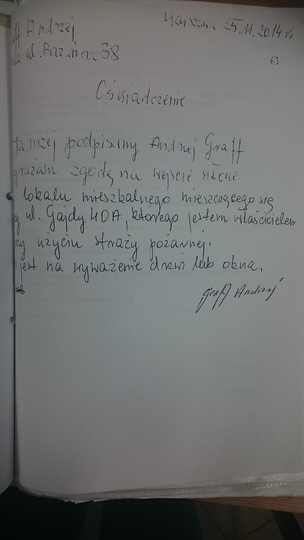 ff Andrzej Warszawa 25.11.2014r
ul. Bazancia 38
63
Oświadczenie
Ja niżej podpisany Andrzej Graff
wyrażam zgodę na wejście siłowe
lokalu mieszkalnego mieszczącego się
ul. Gajdy 40A, którego jestem właścicielem
użyciu straży pożarnej.
jest na wyważenie drzwi lub okna.
Graff Andrzej